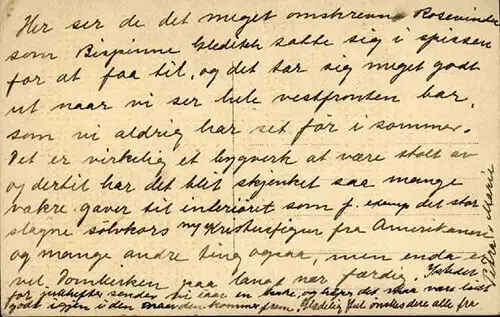 Her ser de det meget omskrevne Rosevindu
som Bispinne Gleditch satte sig i spissen
for at faa til, og det tar sig meget godt
ut naar vi ser hele vestfronten bar,
som vi aldrig har set för i sommer.
Det er virkelig et bygverk at være stolt av
og dertil har det blit skjenket saa mange
vakre gaver til interiöret som f. exemp det stor
slagne sölvkors m/ Kristusfigur fra Amerikanere
og mange andre ting ogsaa, men enda er
vel Domkirken paa langt nær færdig. Istedet
for julehefter sender vi iaar en bok, og haaper det maa være
godt igjen i den kommer frem. Glædelig Jul önskes dere alle fra
Marie